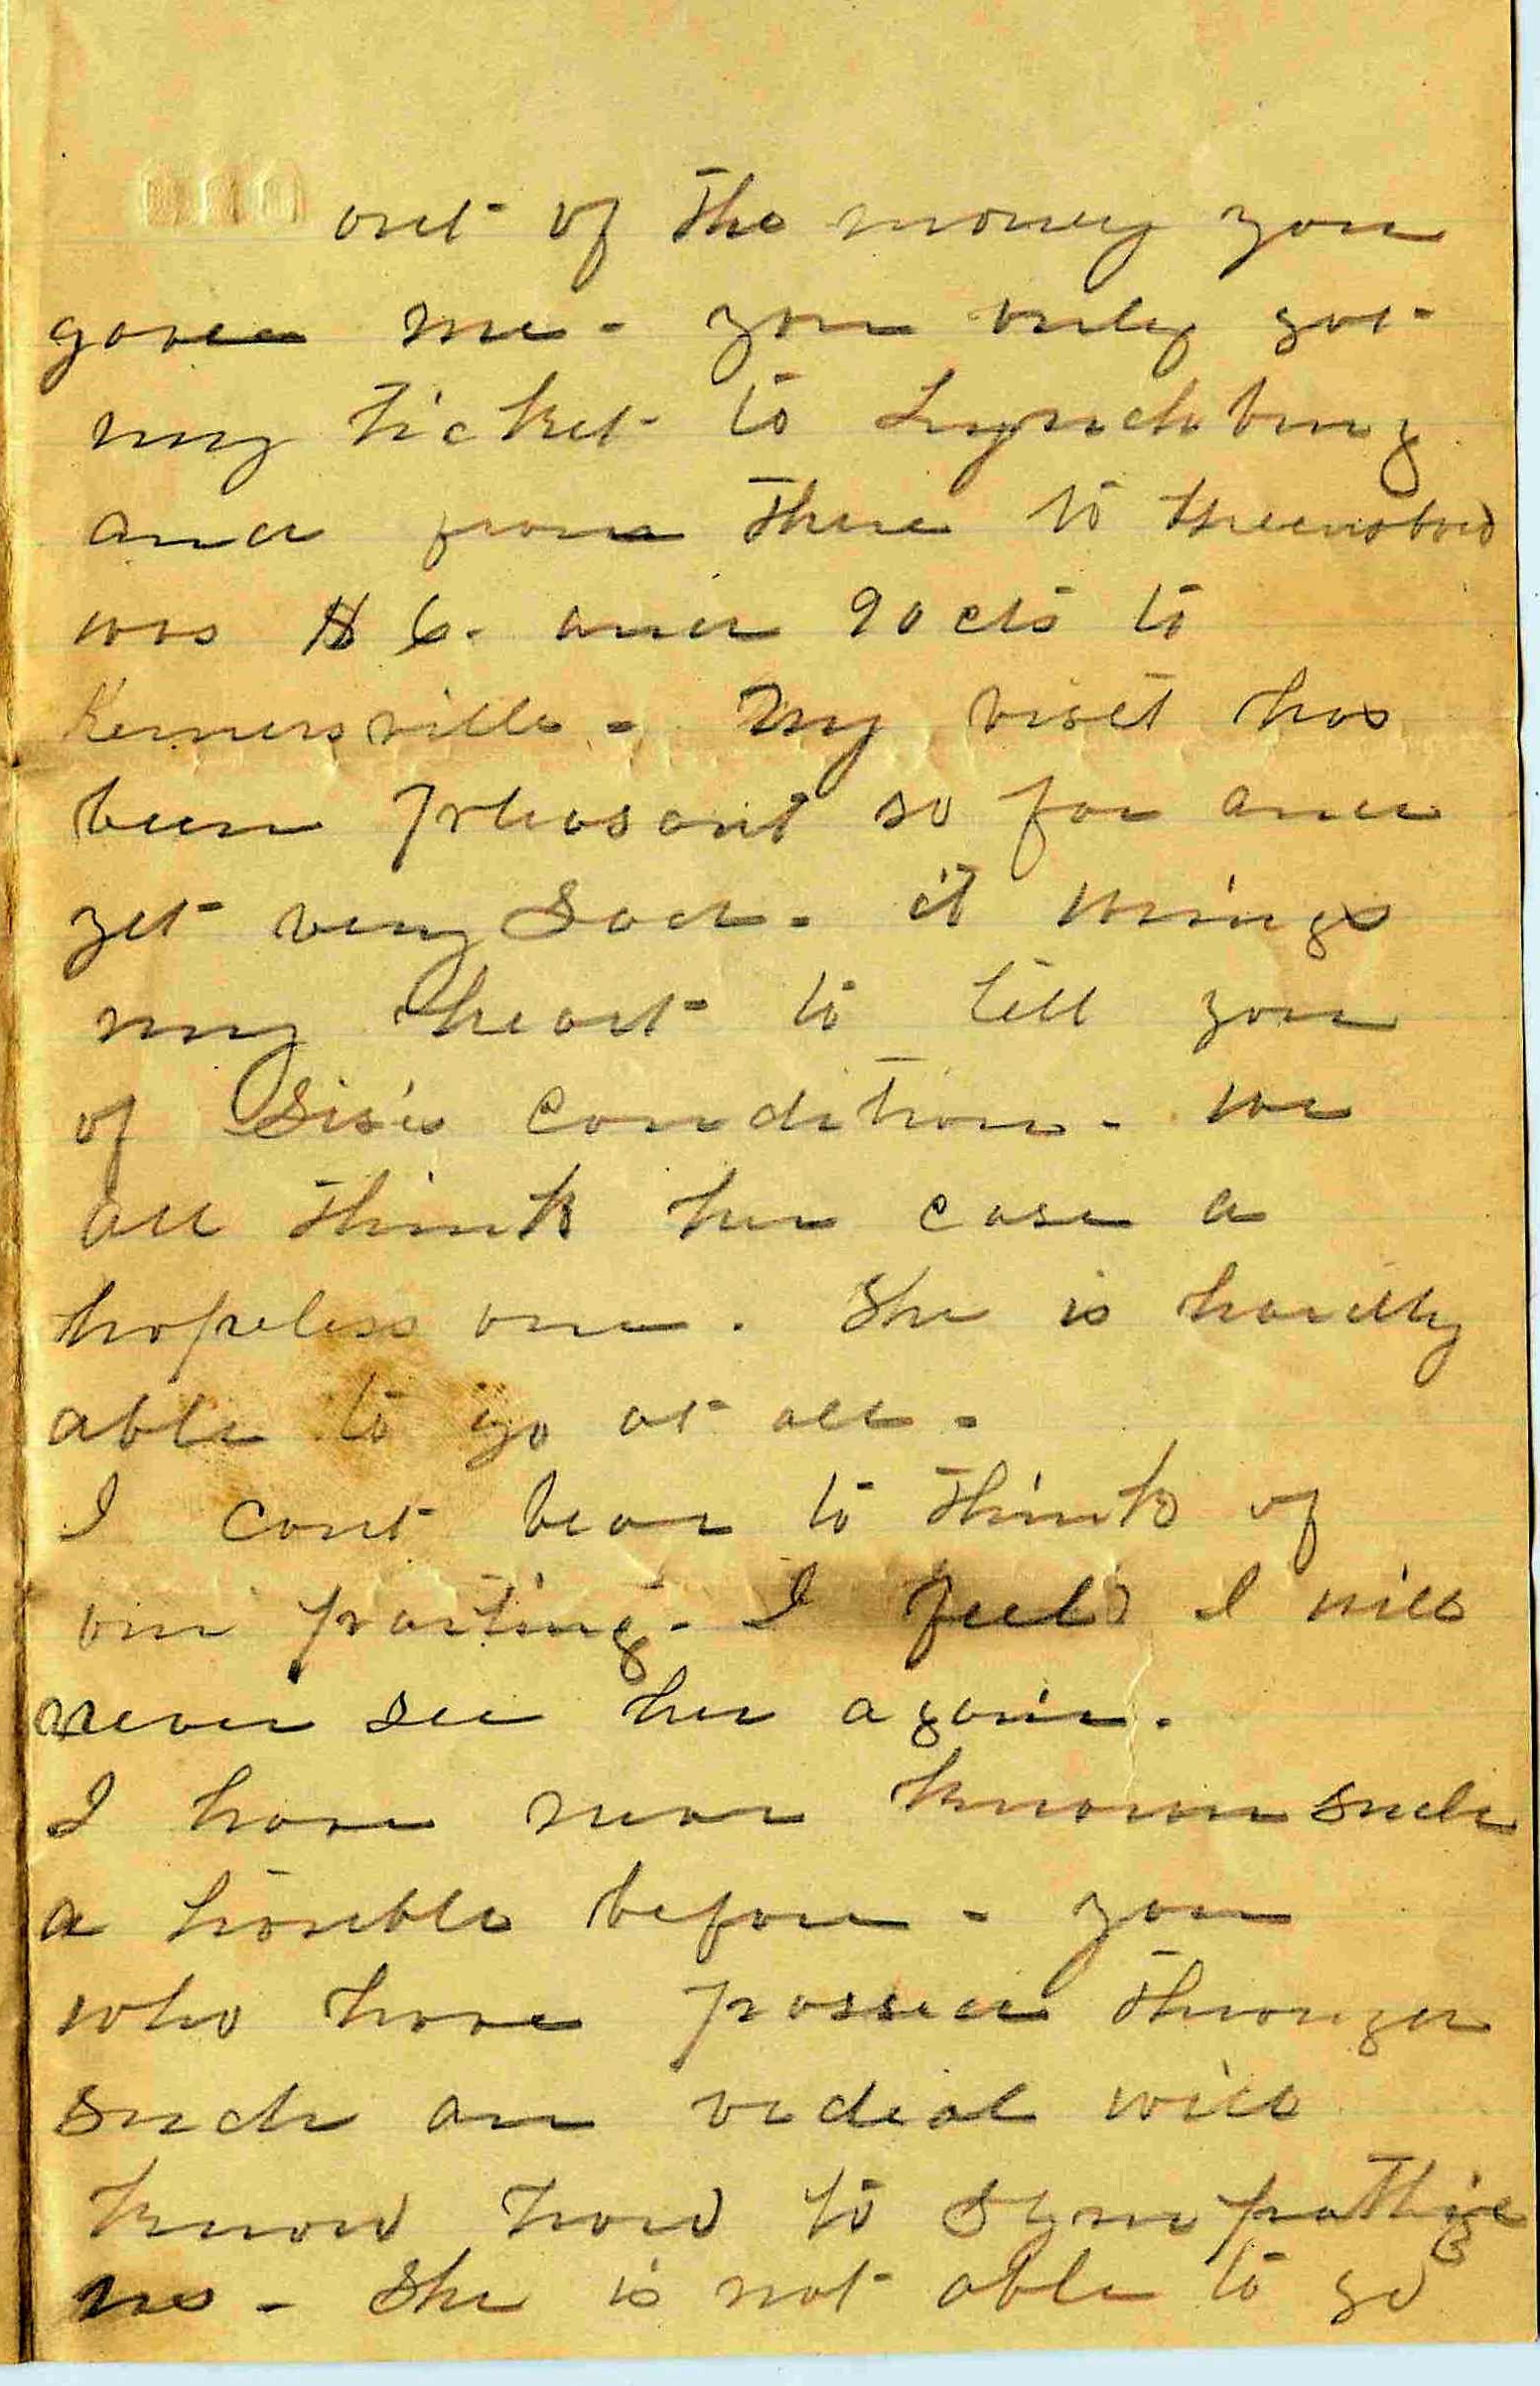 out of the money you
gave me - you only got
my ticket to Lynchburg
and from there to Greensboro
was $6. and 90 cts to
Kernersville - My visit has
been pleasant so far and
yet very sad - it wrings
my heart to tell you
of Sis's condition - we
all think her case a
hopeless one. She is hardly
able to go at all -
I cant bear to think of
our parting - I feel I will
never see her again.
I have never known such
a trouble before - you
who have passed through
such an ordeal will
know how to sympathize
us - She is not able to go